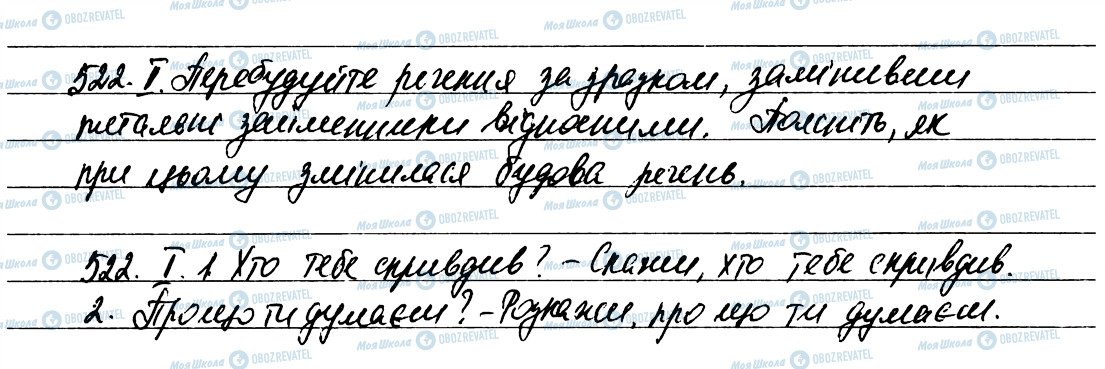 522. I. Перебудуйте речення за зразком, замінивши
питальні займенники відносними. Поясніть, як
при цьому змінилася будова речень.
522. I. 1 Хто тебе скривдив? – Скажи, хто тебе скривдив.
2. Про що ти думаєш? – Розкажи, про що ти думаєш.